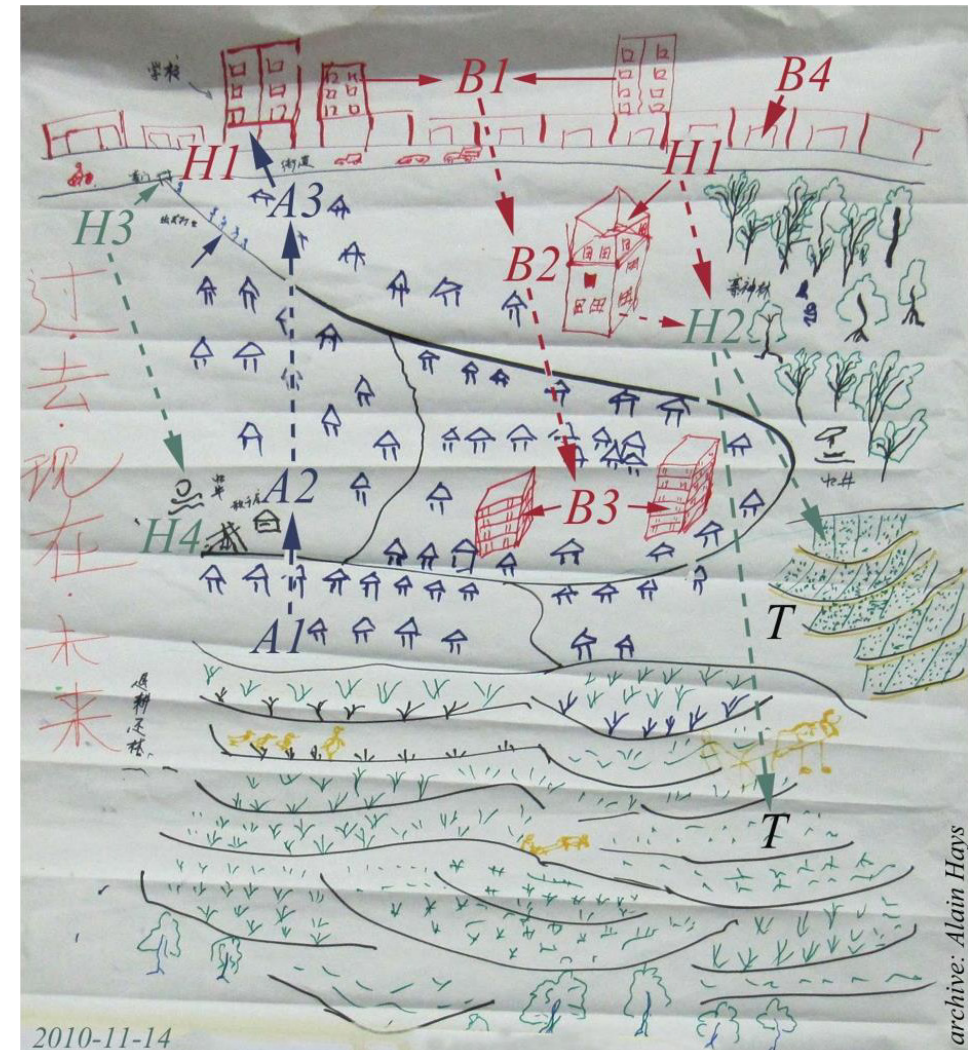 学校
B1
B4
H1
街道
H1
寨门
A3
H3
B2
寨神林
H2
过·去·现·在·未·来
水井
A2
B3
H4
T
A1
退耕还林
T
archive: Alain Hays
2010-11-14